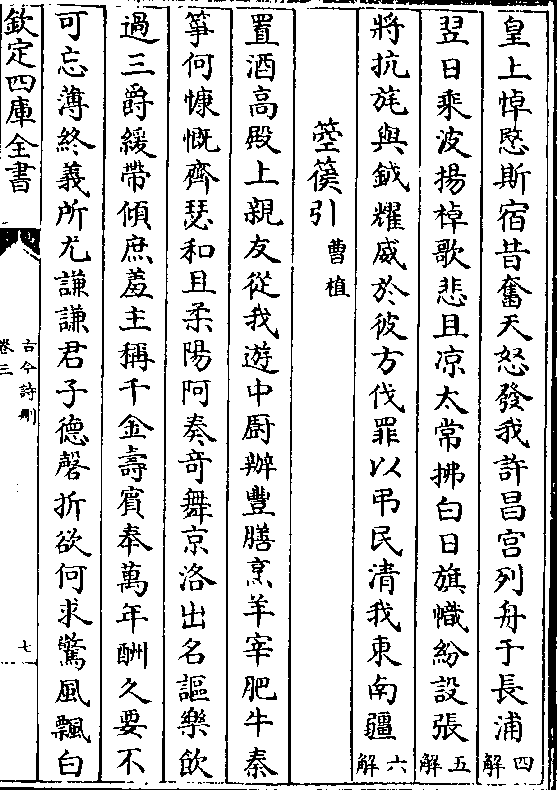 皇上悼愍斯宿昔奮天怒發我許昌宮列舟于長浦四解
翌日乘波揚棹歌悲且凉太常拂白日旗幟紛設張五解
將抗旄與鉞耀威於彼方伐罪以弔民清我東南疆六解
箜篌引曹植
置酒高殿上親友從我遊中廚辦豐膳烹羊宰肥牛秦
箏何慷慨齊瑟和且柔陽阿奏奇舞京洛出名謳樂飲
過三爵緩帶傾庶羞主稱千金壽賓奉萬年酬久要不
可忘薄終義所尤謙謙君子德磬折欲何求驚風飄白
欽定四庫全書
古今詩刪
卷三
七